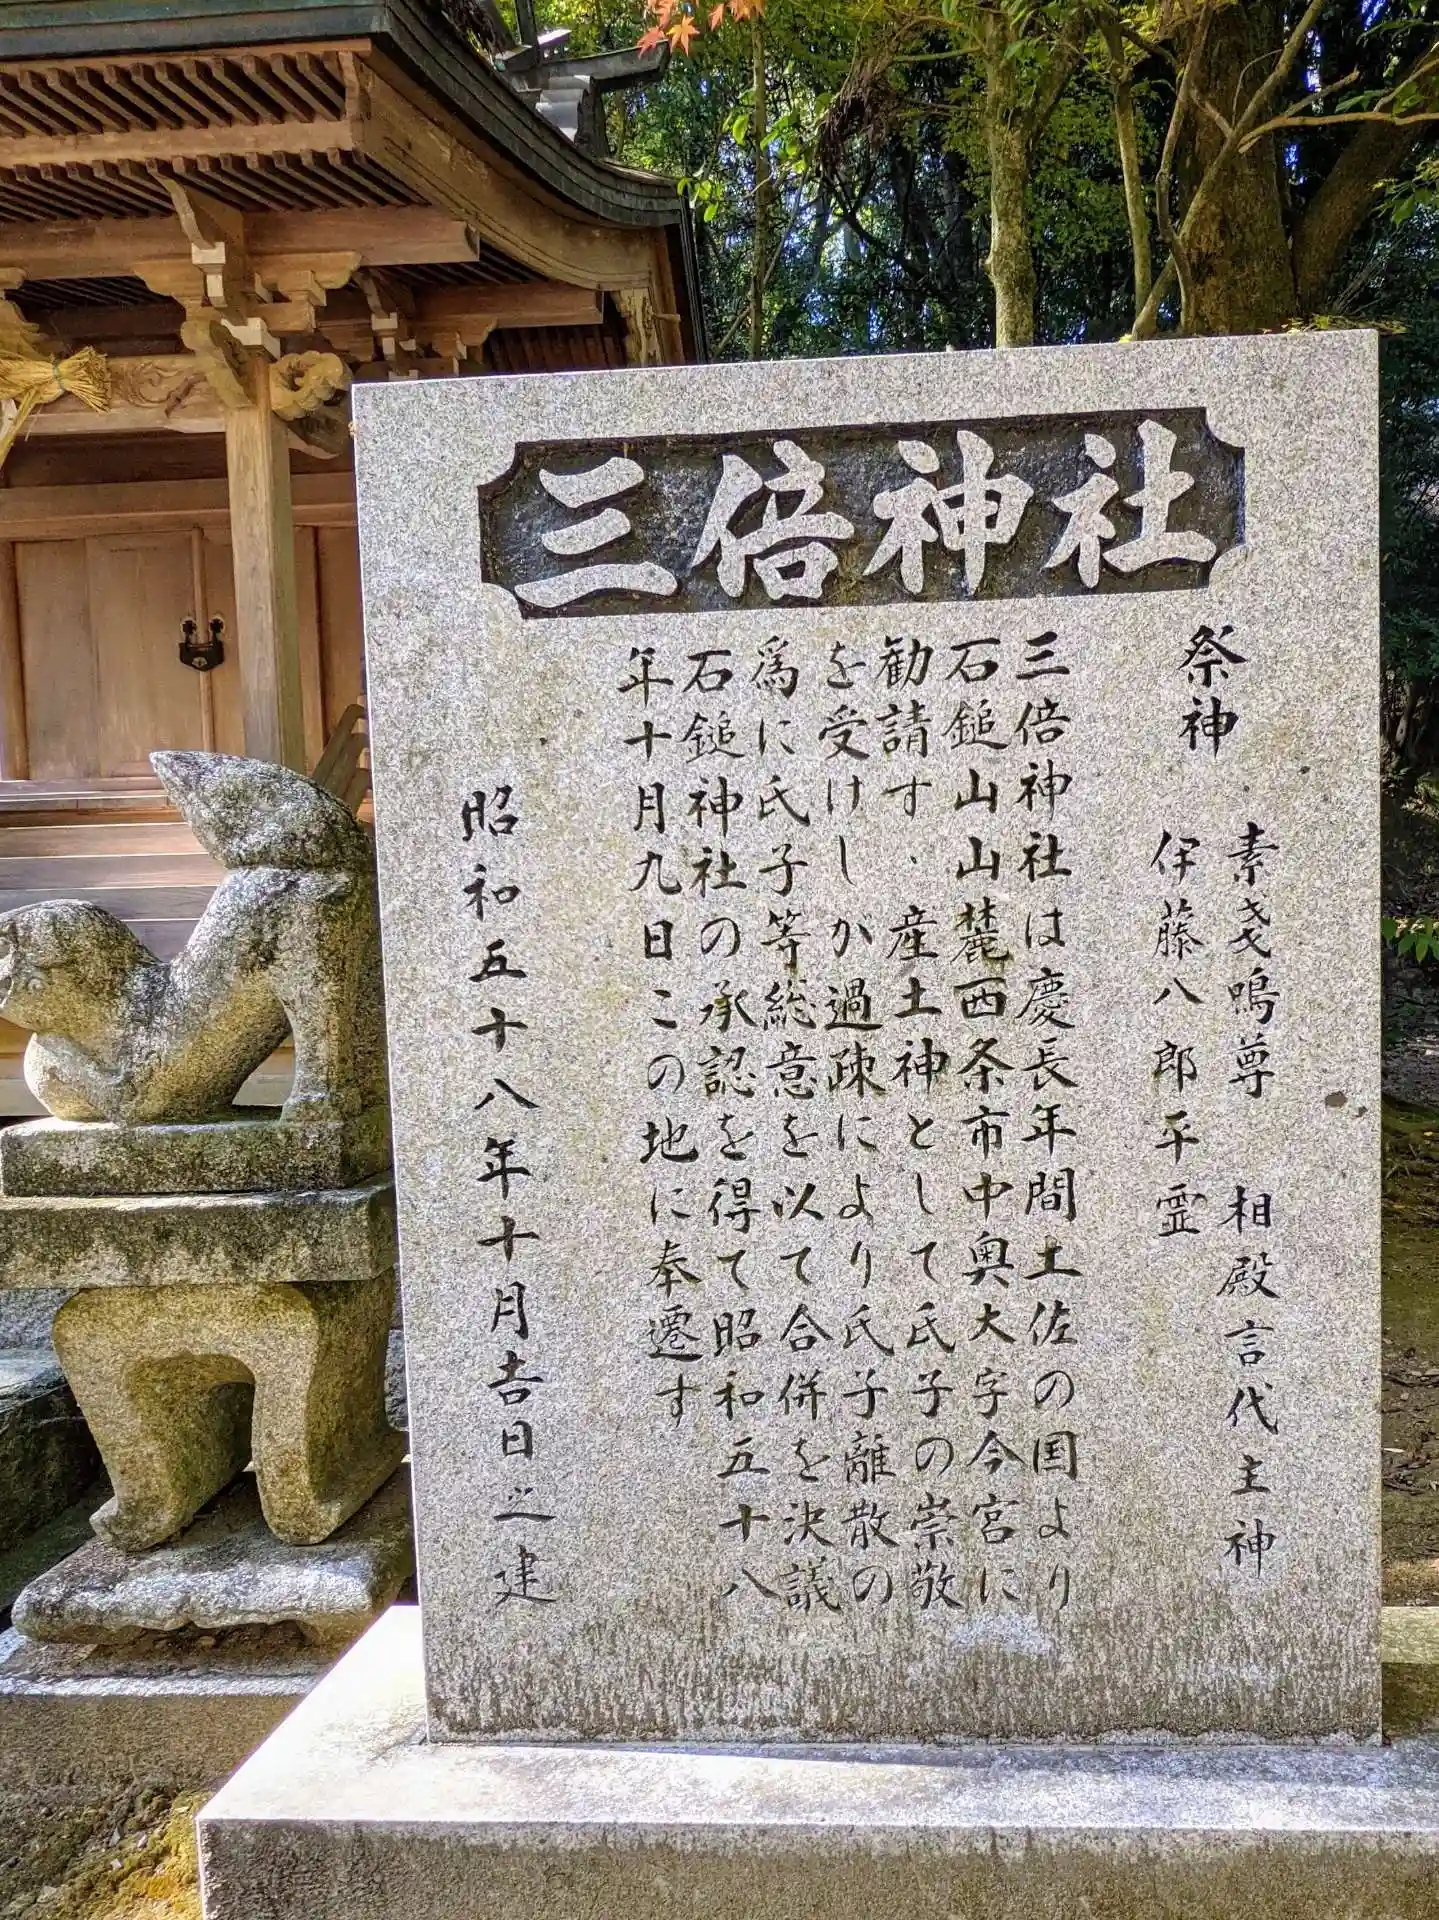 三倍神社
祭神
素戔嗚尊 相殿言代主神
伊藤八郎平霊
三倍神社は慶長年間土佐の国より
石鎚山山麓西条市中奥大字今宮に
勧請す、産土神として氏子の崇敬
を受けしが過疎により氏子離散の
爲に氏子等総意を以て合併を決議
石鎚神社の承認を得て昭和五十八
年十月九日この地に奉遷す
昭和五十八年十月吉日之建